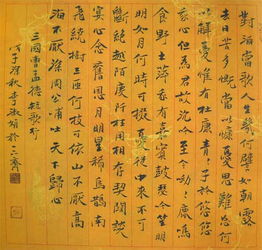 對酒當歌人生幾何譬如朝露
去日苦多慨當以慷憂思難忘何
以解憂惟有杜康青々子衿悠悠
我心但為君故沉吟至今呦々鹿鳴
食野之苹我有嘉賓鼓瑟吹笙明
明如月何時可掇憂從中來不可
斷絕越陌度阡枉用相存契闊談
宴心念舊恩月明星稀烏鵲南
飛繞樹三匝何枝可依山不厭高
海不厭深周公吐哺天下歸心
三國曹孟德短歌行
子深秋